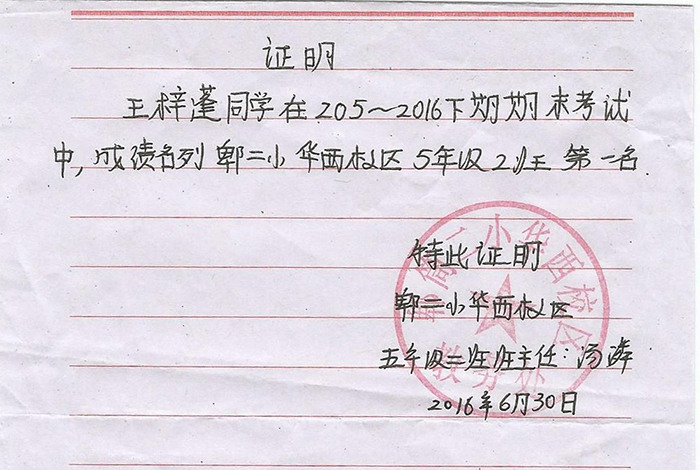 证明
王梓蓬同学在205～2016下期期末考试
中,成绩名列 郫二小华西校区 5年级2班 第一名
特此证明
郫二小华西校区
五年级二班班主任:汤
2016年6月30日
小华西校区
教务处